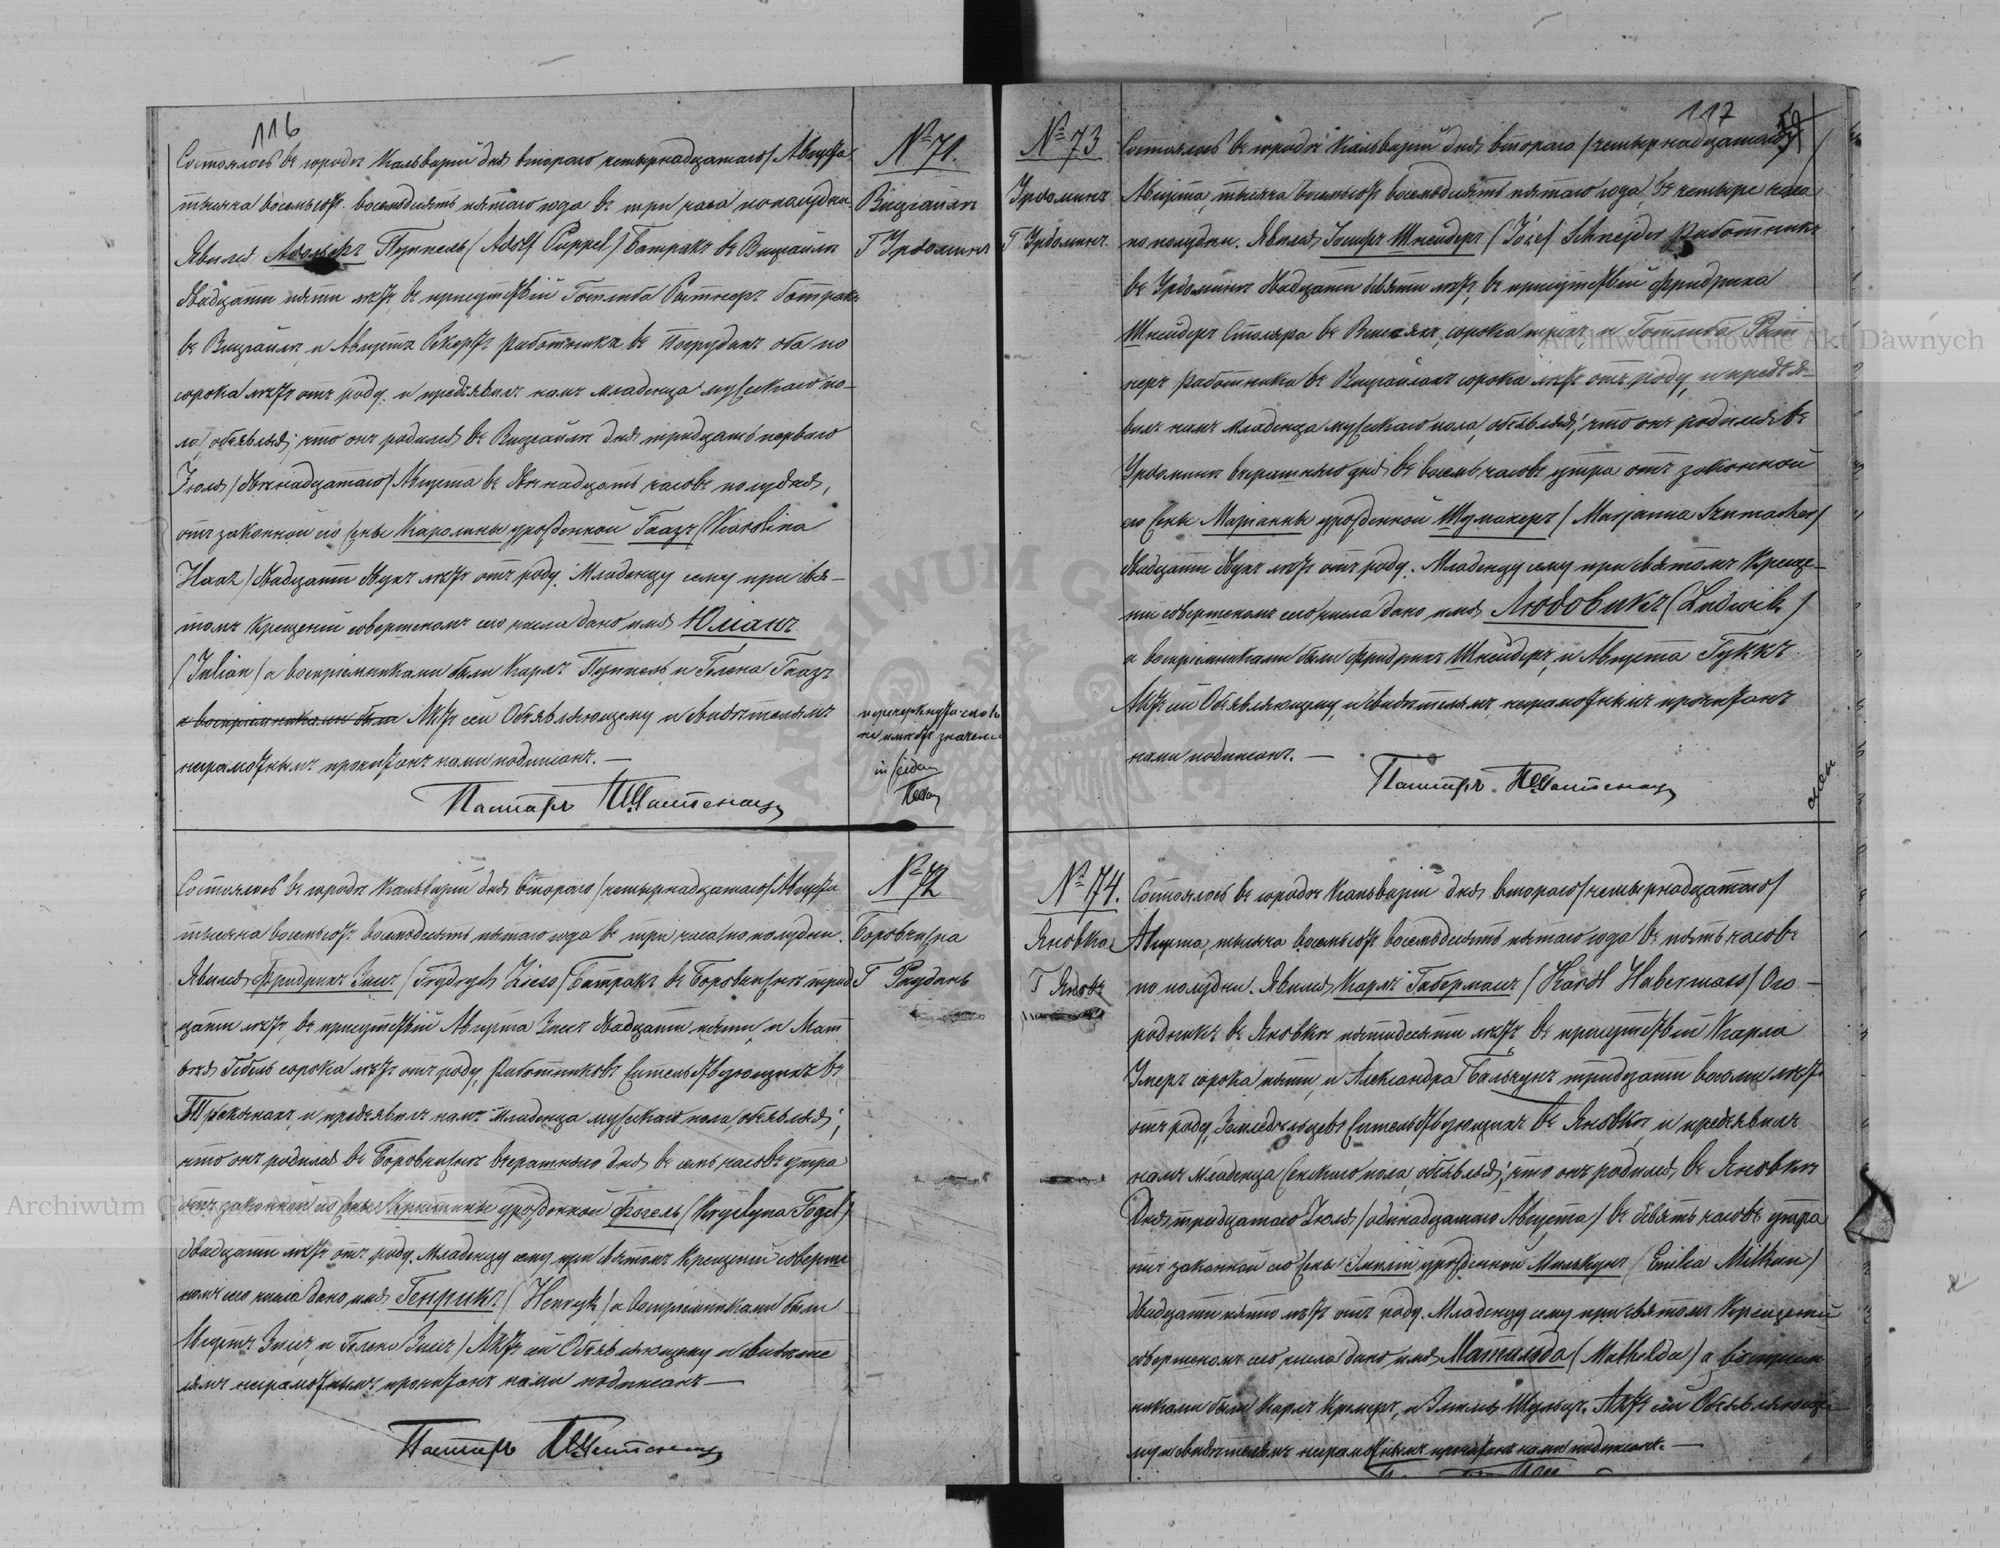 116
№ 71.
Состоялось въ городѣ Кальваріи дня втораго /четырнадцатаго/ Августа
тысяча восемьсотъ восемьдесятъ пятаго года въ три часа пополудни.
Вишгайли
Явился Адольфъ Пуппель (Adolf Puppel) Батракъ въ Вишгайли
Г Урдомин
двадцати пяти лѣтъ, въ присутствіи Готлиба Ритнеръ батрака
въ Вишгайли, и Августа работника въ оба по
сорока лѣтъ отъ роду, и предъявилъ намъ младенца мужескаго по-
ла, объявляя, что онъ родился въ Вишгайли дня тридцать перваго
Іюля /двѣнадцатаго/ Августа въ двѣнадцать часовъ полудня,
отъ законной его жены Каролины урожденной Гаазъ (Karolina
Haaz) двадцати двухъ лѣтъ отъ роду. Младенцу сему при свя-
томъ Крещеніи совершеномъ сего числа дано имя Юліанъ
(Julian) а воспріемниками были Карлъ Пуппель и Гелена Гаазъ
а воспріемниками были Актъ сей Объявляющему и свидѣтелямъ
неграмотнымъ прочитанъ нами подписанъ. —
не имѣютъ значенія
Пасторъ
№ 72
Состоялось въ городѣ Кальваріи дня втораго /четырнадцатаго/ Августа
тысяча восемьсотъ восемьдесятъ пятаго года въ три часа по полудни.
Явился Фридрихъ Зисъ (Frydrych Ziess) Батракъ въ трид
цати лѣтъ, въ присутствіи Августа Зисъ двадцати пяти, и Мат
сорока лѣтъ отъ роду, Работниковъ жительствующихъ въ
и предъявилъ намъ младенца мужескаго пола, объявляя,
что онъ родился въ вчерашняго дня въ семь часовъ утра
отъ законной его жены Кристины урожденной Фогель (Krystyna Fogel)
двадцати лѣтъ отъ роду. Младенцу сему при святомъ Крещеніи соверше
номъ сего числа дано имя Генрихъ (Henryk) а воспріемниками были
Августъ Зисъ, и Гелена Зисъ) Актъ сей Объявляющему и свидѣте
лямъ неграмотнымъ прочитанъ нами подписанъ —
Пасторъ
117
№ 73
Состоялось въ городѣ Кальваріи дня втораго /четырнадцатаго/
Урдоминъ
Августа, тысяча восемьсотъ восемьдесятъ пятаго года, въ четыре часа
Г Урдоминъ
по полудни. Явился Іосифъ Шнейдеръ (Józef Schnejder) Работникъ
въ Урдоминѣ двадцати девяти лѣтъ, въ присутствіи Фридриха
Шнейдеръ Столяра въ сорока трехъ и Готлиба Рит
неръ работника въ Вишгайлахъ сорока лѣтъ отъ роду, и предъя-
вилъ намъ младенца мужескаго пола, объявляя, что онъ родился въ
Урдоминѣ вчерашняго дня въ восемь часовъ утра отъ законной
его жены Маріанны урожденной Шумахеръ /Marjanna Szumacher/
двадцати двухъ лѣтъ отъ роду. Младенцу сему при святомъ Креще-
ніи совершеномъ сего числа дано имя Людовикъ (Ludwik)
а воспріемниками были Фридрихъ Шнейдеръ, и Августа Гуккъ
Актъ сей Объявляющему, и свидѣтелямъ неграмотнымъ прочитанъ
нами подписанъ. —
Пасторъ
№ 74.
Состоялось въ городѣ Кальваріи дня втораго /четырнадцатаго/
Яновка
Августа, тысяча восемьсотъ восемьдесятъ пятаго года въ пять часовъ
по полудни. Явился Карлъ Габерманъ (Karol Habermann) Ого-
родникъ въ Яновкѣ пятидесяти лѣтъ, въ присутствіи Карла
сорока пяти, и Александра тридцати восьми лѣтъ
отъ роду, Земледѣльцевъ жительствующихъ въ Яновкѣ, и предъявилъ
намъ младенца женскаго пола, объявляя, что онъ родился въ Яновкѣ
дня тридцатаго Іюля /одинадцатаго Августа/ въ девять часовъ утра
отъ законной его жены Эмиліи урожденной Милькунъ (Emilia Milkun)
двадцати пяти лѣтъ отъ роду. Младенцу сему при святомъ Крещеніи
совершеномъ сего числа дано имя Матильда (Mathilda) а воспріем
никами были Карлъ Кремеръ, и Шульцъ. Актъ сей Объявляюще
му и свидѣтелямъ неграмотнымъ прочитанъ нами подписанъ. —
Archiwum Główne Akt Dawnych